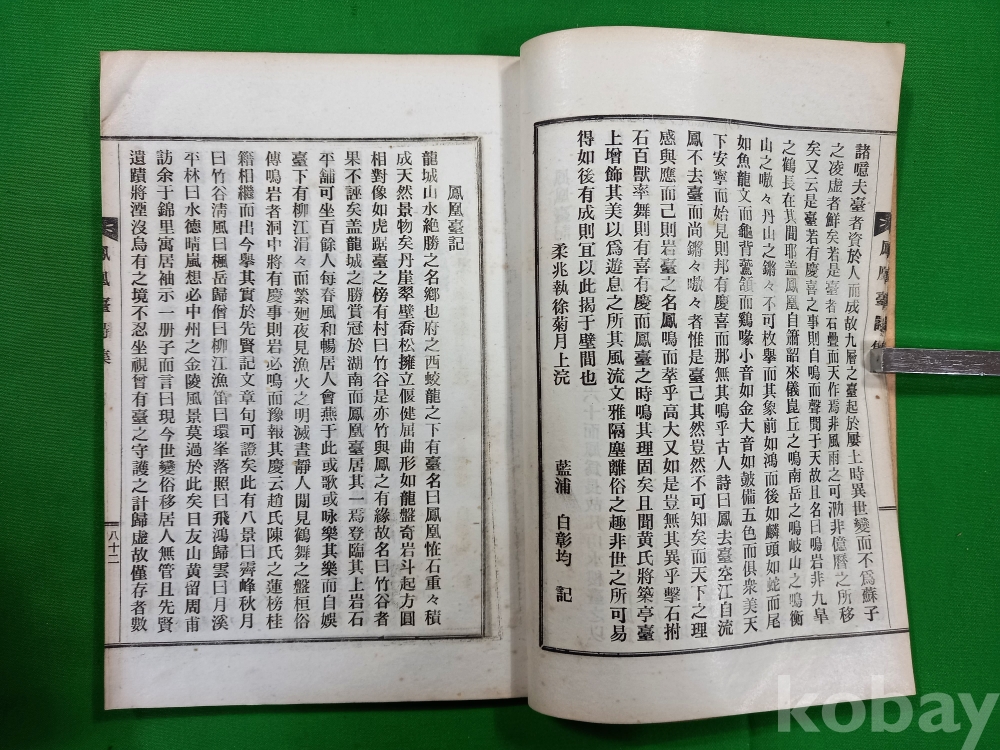 諸噫夫臺者資於人而成故九層之臺起於屢上時異世變而不爲蘇子
之凌虛者鮮矣若是臺者石疊而天作焉非風雨之可泐非億曆之所移
矣又云是臺若有慶喜之事則自鳴而聲聞于天故且名曰鳴岩非九皐
之鶴長在其間耶盖鳳凰自簫韶來儀崑丘之鳴南岳之鳴岐山之鳴衡
山之嗷々丹山之鏘々不可枚擧而其象前如鴻而後如麟頭如蛇而尾
如魚龍文而龜背鷰頷而鷄喙小音如金大音如皷備五色而俱衆美天
下安寧而始見則邦有慶喜而那無其鳴乎古人詩曰鳳去臺空江自流
鳳不去臺而尚鏘々嗷々者惟是臺己其然豈然不可知矣而天下之理
感與應而己則岩臺之名鳳鳴而萃乎高大又如是豈無其異乎擊石拊
石百獸率舞則有喜有慶而鳳臺之時鳴其理固矣且聞黃氏將築亭臺
上增飾其美以爲遊息之所其風流文雅隔塵離俗之趣非世之所可易
得如後有成則冝以此揭于壁間也
柔兆執徐菊月上浣
藍浦 白彰均 記
鳳凰臺記
龍城山水絶勝之名鄉也府之西蛟龍之下有臺名曰鳳凰恠石重々積
成天然景物矣丹崖翠壁喬松擁立偃健屈曲形如龍盤奇岩斗起方圓
相對像如虎踞臺之傍有村曰竹谷是亦竹與鳳之有緣故名曰竹谷者
果不誣矣盖龍城之勝賞冠於湖南而鳳凰臺居其一焉登臨其上岩石
平舖可坐百餘人每春風和暢居人會燕于此或歌或咏樂其樂而自娛
臺下有柳江涓々而縈廻夜見漁火之明滅晝靜人閒見鶴舞之盤桓俗
傳鳴岩者洞中將有慶事則岩必鳴而豫報其慶云趙氏陳氏之蓮榜桂
籍相繼而出今擧其實於先賢記文章句可證矣此有八景曰霽峰秋月
曰竹谷淸風曰楓岳歸僧曰柳江漁笛曰環峯落照曰飛鴻歸雲曰月溪
平林曰水德晴嵐想必中州之金陵風景莫過於此矣日友山黃留周甫
訪余于錦里寓居袖示一册子而言曰現今世變俗移居人無管且先賢
遺蹟將湮沒烏有之境不忍坐視曾有臺之守護之計歸虛故僅存者數
鳳凰臺詩集
八十二
kobay